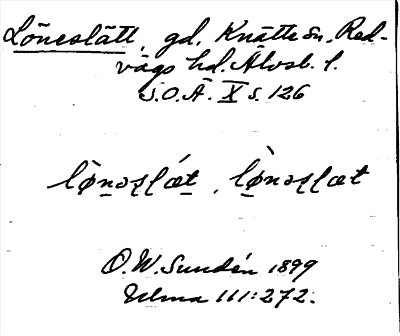 Löneslätt, gd, Knätte sn, Red-
vägs hd. Älvsb. l.
S.O.Ä. X s. 126
lø̀nəʂl̥ǽt, lø̀nəʂl̥æt
O.W. Sundén 1899
Ulma 111:272.